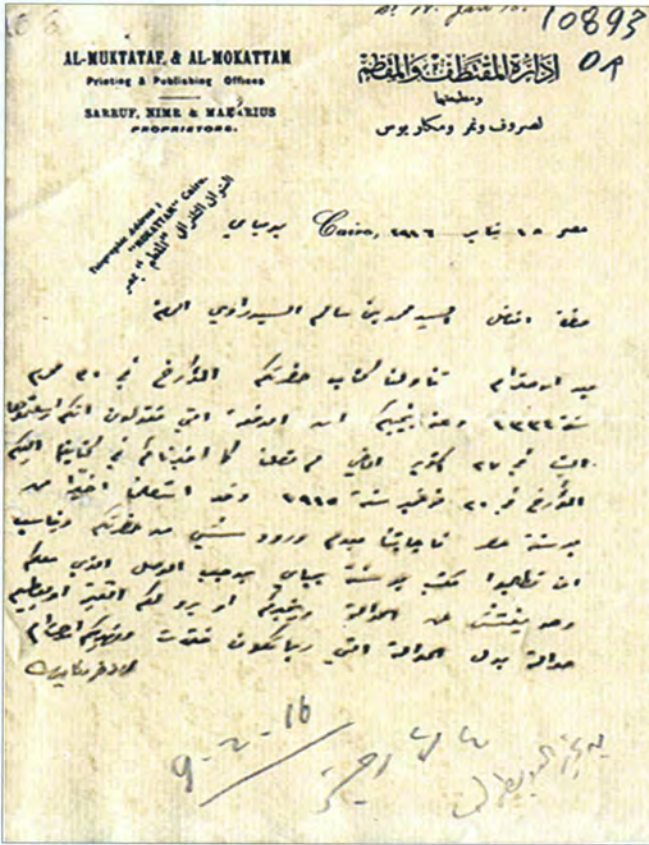 10893
AL-MUKTATAF, & AL-MOKATTAM
Printing & Publishing Offices
SARRUF, NIMR & MAKARIUS
PROPRIETORS.
إدارة المقتطف والمقطم
ومطبعتها
لصروف ونمر ومكاريوس
Telegraphic Address:
"MOKATTAM" Cairo.
العنوان التلغرافي "المقطم" بمصر
مصر ١٨ يناير ١٩١٦ Cairo, بومباي
حضرة الفاضل السيد محمد بن سالم السيد
بعد الاحترام تناولنا كتاب حضرتكم المؤرخ في ٢٠ محرم
سنة ١٣٣٤ التي تقولون انكم ارسلتموها
الينا في ٢٧ اكتوبر الماضي لم تصلنا كما اخبرناكم في كتابنا اليكم
المؤرخ في ٢٠ نوفمبر سنة ١٩١٥ وقد استعلمنا اخيرا من
بوستة مصر فاجابتنا بعدم ورود شيء من حضرتكم
ان تطلبوا مكتب بوستة بمباي بموجب الوصل الذي معكم
وهو يفتش عن الحوالة او يرد لكم القيمة
حوالة بدل الحوالة التي ربما تكون فقدت
9-2-16